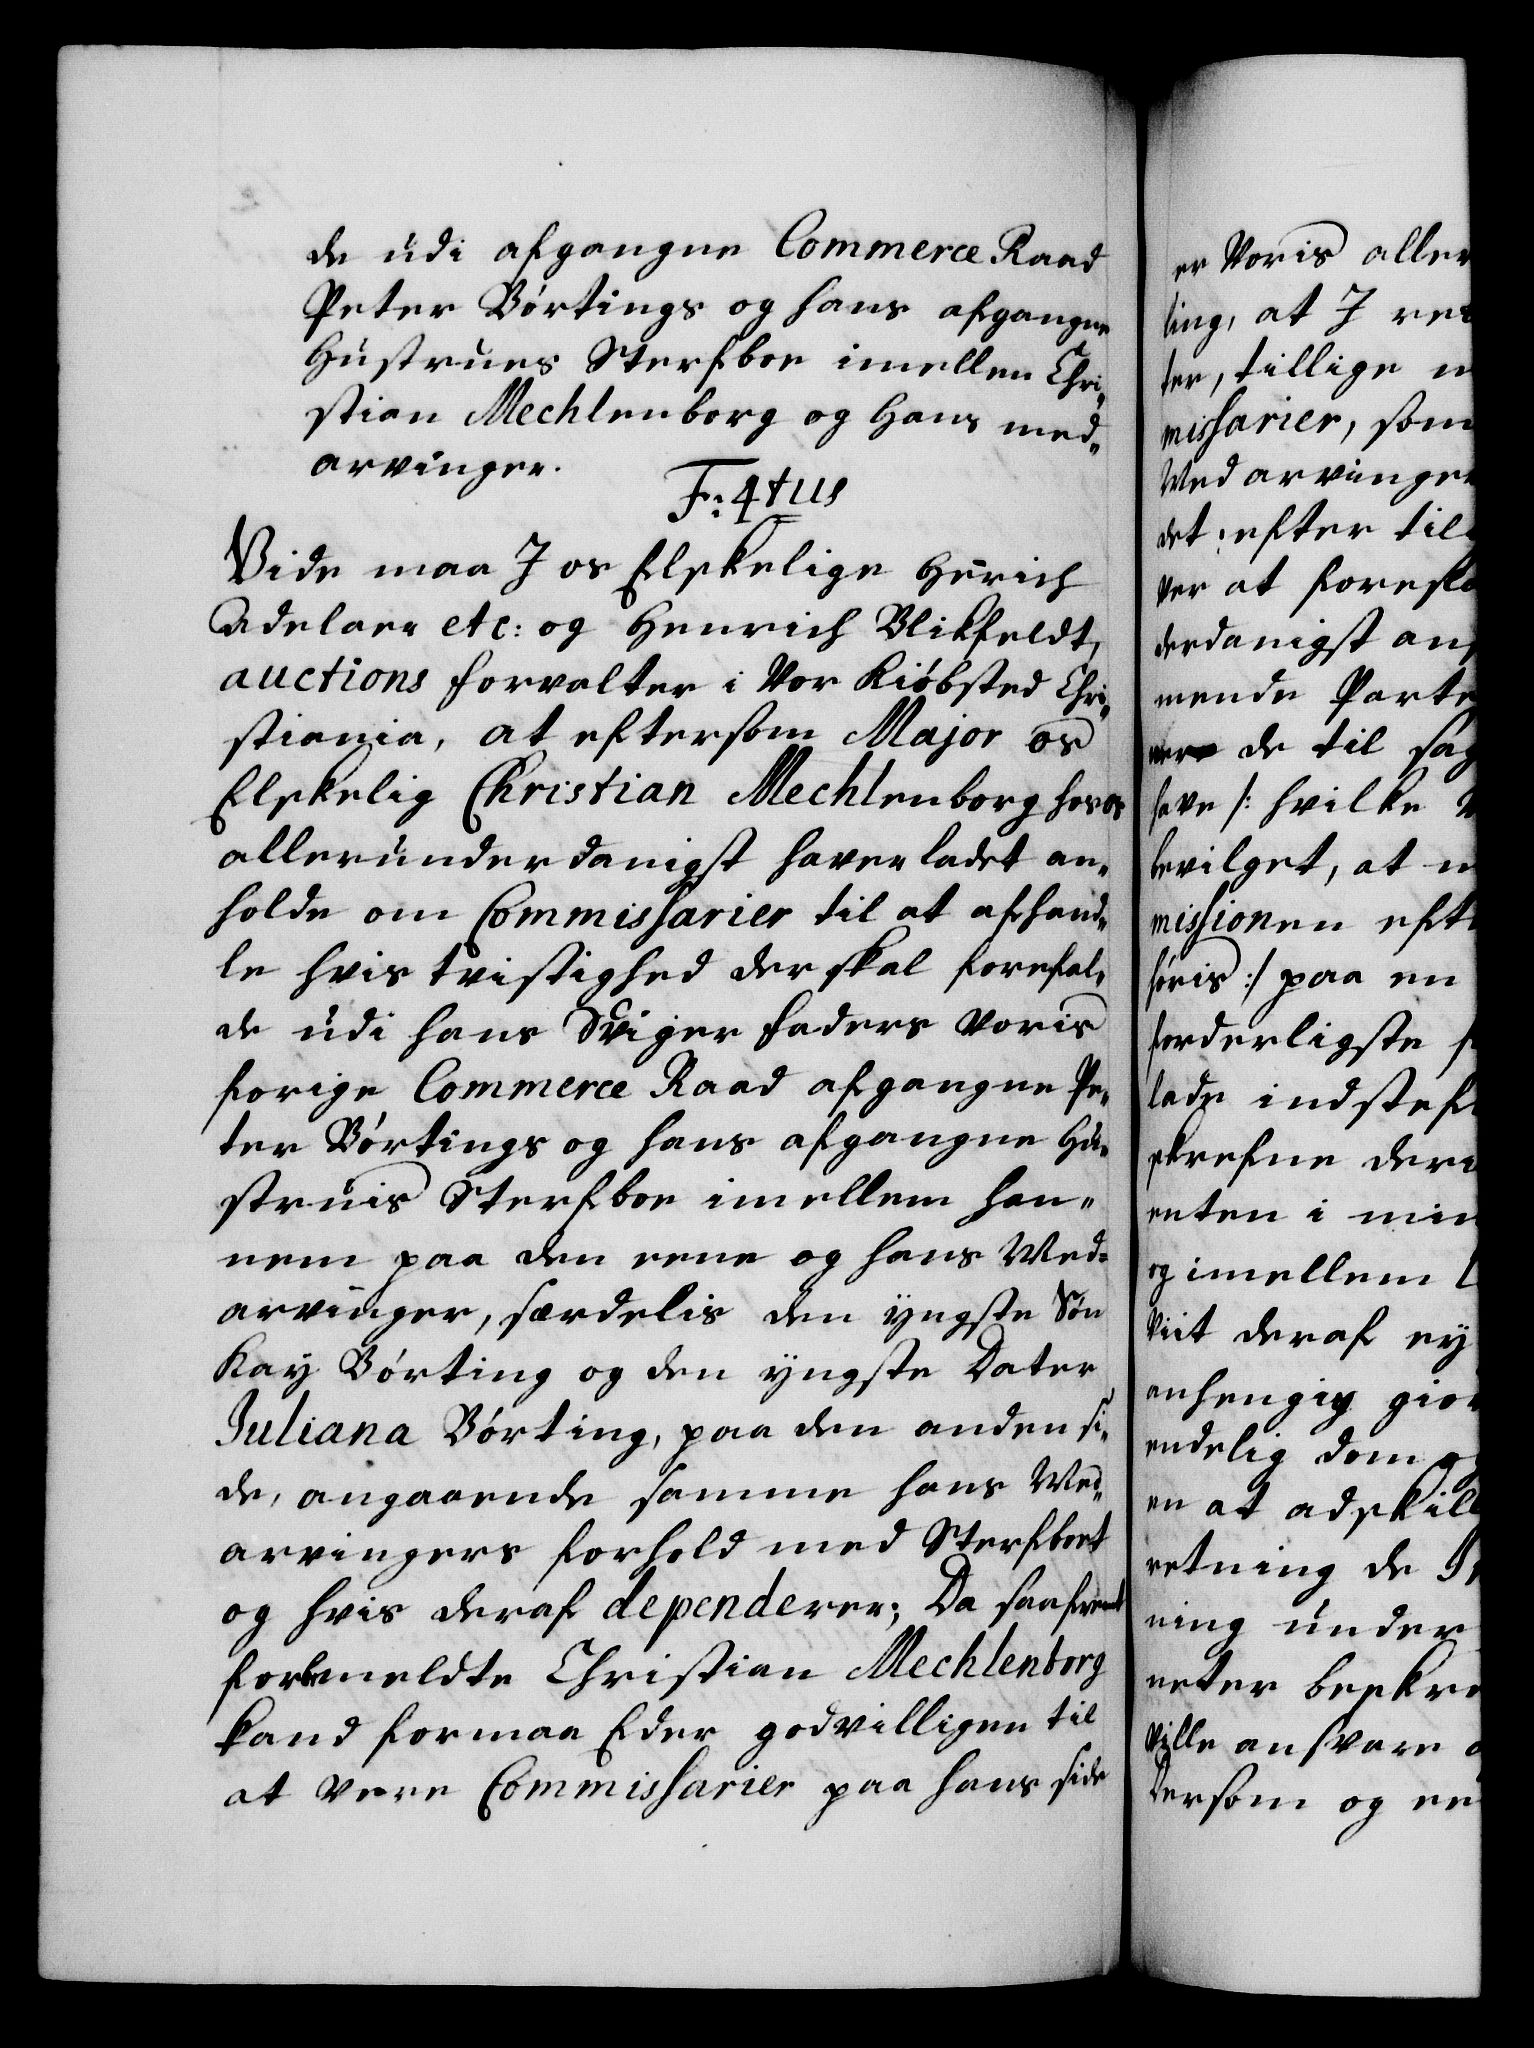 de udi afgangne Commerce Raad
Peter Börtings og hans afgangne
Hustrues Sterfboe imellen Chri,,
stian Mechlenborg og Hans med,,
arvinger.
F: 4tus
Vide maa I os Elskelige Henrich
Adelaer etc: og Henrich Blikfeldt,
auctions forvalter i Vor Kiöbsted Chri,,
stiania, at eftersom Major os
Elskelig Christian Mechlenborg hos os
allerunderdanigst haver ladet an,,
holde om Commissarier til at afhand,,
le hvis tvistighed der skal forefal,,
de udi hans Sviger faders Voris
forige Commerce Raad afgangne Pe,,
ter Börtings og hans afgangne Hu,,
struis Sterfboe imellem han,,
nem paa den eene og hans Med,,
arvinger, særdelis den yngste Søn
Kay Börting og den yngste Dater
Juliana Börting, paa den anden si,,
de, angaaende samme hans Med,,
arvingers forhold med Sterfboet
og hvis deraf dependerer; Da saafremt
formeldte Christian Mechlenborg
kand formaa Eder godvilligen til
at vere Commissarier paa hans side
er Voris aller
ling, at I ret
ter, tillige m
missarier, som
Med arvinger
det, efter til
ver at foresla
derdanigst an
mende Parte
de til sag
have /: hvilke
bevilget, at
missionen eft
høris :/ paa en
forderligste
lade indstef
skrefne der
enten i min
og imellem
viit deraf ey
anhengig giør
endelig dom og
en at adskill
retning de
ning under
neter beskre
ville ansvare
Dersom og en